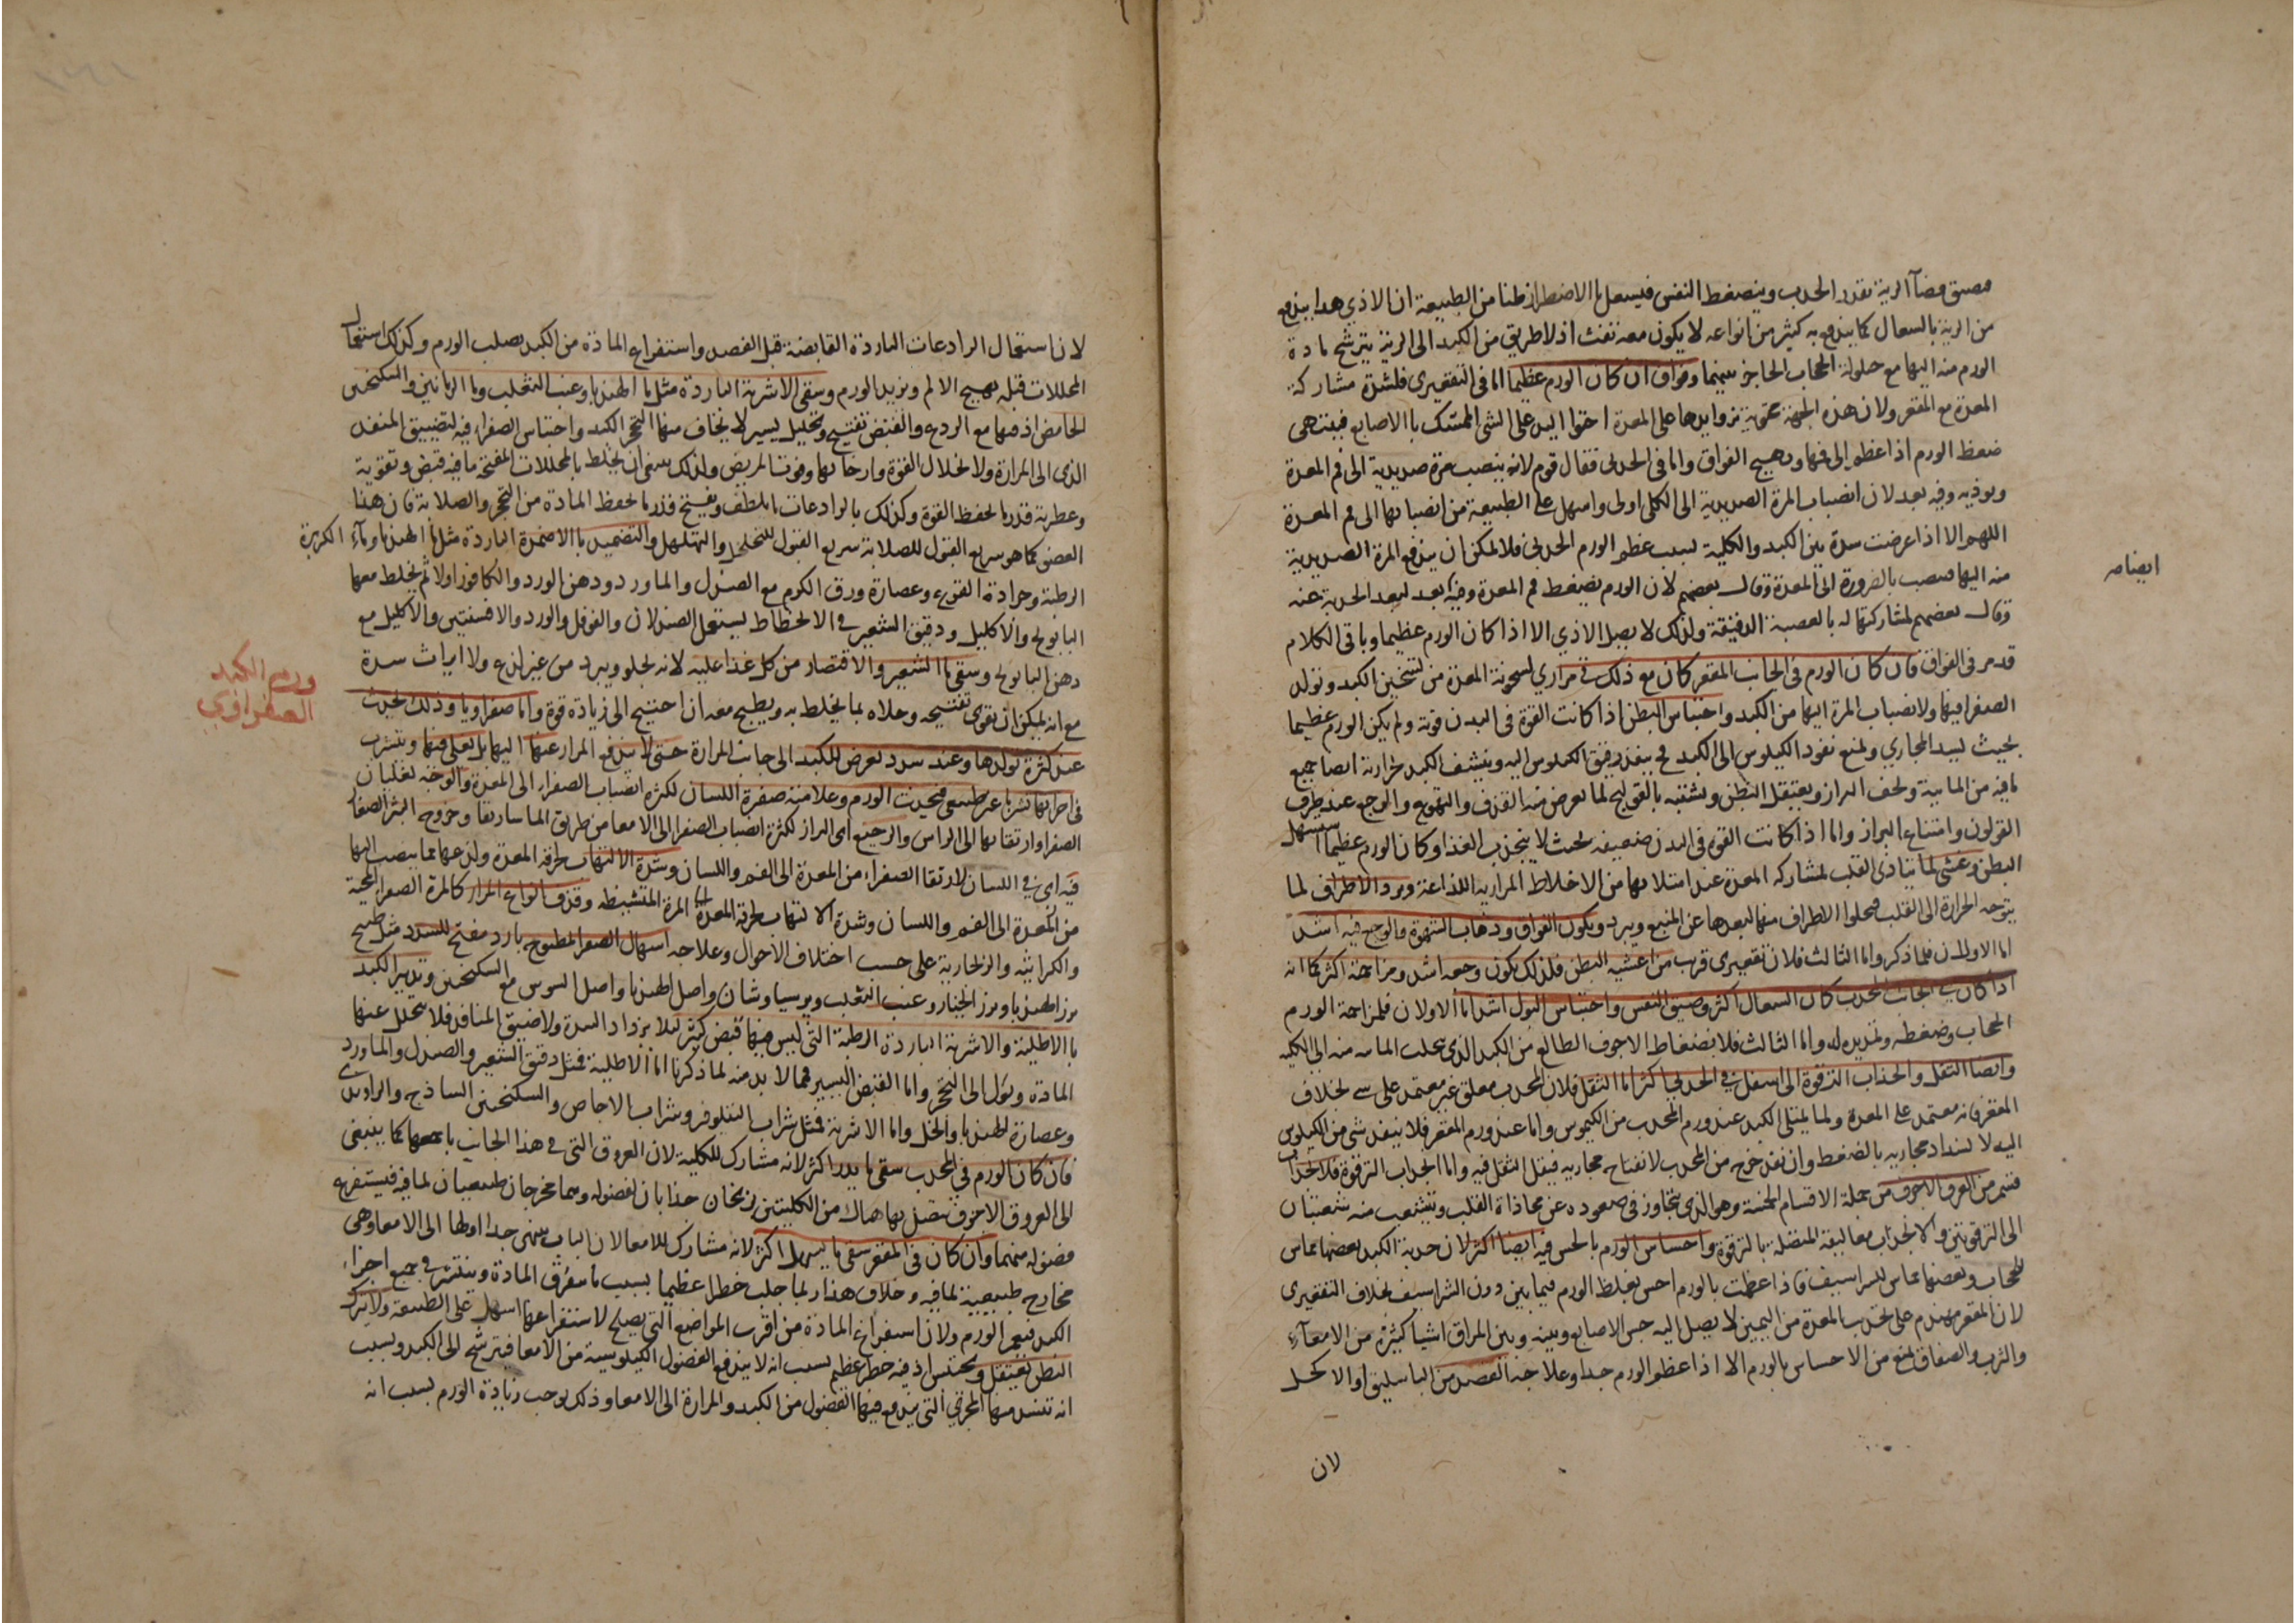 الرية بقدر الحدب وينضغط النفس فيسعل الاضطراز ظنا من الطبيعة ان الاذي هدا يندفع
من الرية بالسعال كما يندفع به كثير من انواعه لا يكون معه نفث اذ لا طريق من الكبد الى الرية يترشح مادة
الورم منه اليها مع حلولة الحجاب الحاجز بينهما وفواق ان كان الورم عظيما اما في التقعيري فلشدة مشاركة
المعدة مع المقعر ولان هذه الجهة بزوايدها على المعدة احتوا اليد على الشي الممتسك باالاصابع فينتهى
ضغط الورم اذا عظم الى فمها ويهيج الفواق واما في الحدبى فقال قوم لانه ينصب مرة صديدية الى فم المعدة
ويوذيه وفيه بعد لان انصباب المرة الصديدية الى الكلى اولى واسهل على الطبيعة من انصبابها الى فم المعدة
اللهم الا اذا عرضت سدة بين الكبد والكلية لسبب عظم الورم الحدبى فلا يمكن ان يندفع المرة الصديدية
منه اليها فينصب بالضرورة الى المعدة وقال بعضهم لان الورم يضغط فم المعدة وفيه بعد لبعد الحدبة عنه
وقال بعضهم لمشاركتها له بالعصبة الدقيقة ولذلك لا يصل الاذي الا اذا كان الورم عظيما وباقي الكلام
قد مر في الفواق فان كان الورم في الجانب المقعر كان مع ذلك قي مراري لسخونة المعدة من تسخين الكبد وتولد
الصفرا فيها ولانصباب المرة اليها من الكبد واحتباس البطن اذا كانت القوة في البدن قوية ولم يكن الورم عظيما
بحيث يسد المجاري ويمنع نفود الكيلوس الى الكبد فح ينفذ رقيق الكيلوس اليه وينشف الكبد لحرارته ايضا جميع
مافيه من المايية ويجف البراز ويعتقل البطن ويشتبه بالقولنج لما يعرض منه القذف والتهوع والوجع عند طرف
القولون وامتناع البراز واما اذا كانت القوة في البدن ضعيفة بحيث لا ينجذب الغذا وكان الورم عظيما استسهل
البطن وغشي لما يتادى القلب لمشاركة المعدة عند امتلايها من الاخلاط المرارية اللذاعة وبرد الاطراف لما
يتوجه الحرارة الى القلب فيخلوا الاطراف منها لبعدها عن المنبع ويبرد ويكون الفواق وذهاب الشهوة والوجع فيه اشد
اما الاولان فلما ذكر واما الثالث فلان تقعيري قرب من اغشية البطن فلذلك يكون وجعه اشد ومزاحمته اكثر كما انه
اذا كان في الجانب المحدب كان السعال اكثر وضيق النفس واحتباس البول اشد اما الاولان فلمزاحمة الورم
الحجاب وضغطه وتمديده له واما الثالث فلانضغاط الاجوف الطالع من الكبد الذي تجلب الما منه الى الكلية
وايضا الثقل وانجذاب الترقوة الى اسفل في الحدبى اكثر اما الثقل فلان المحدب معلق غير معتمد على شي بخلاف
المقعر فانه معتمد على المعدة ولما يمتلى الكبد عند ورم المحدب من الكيموس واما عند ورم المقعر فلا ينفذ شي من الكيلوس
اليه لانسداد مجاريه بالضغط وان نفذ خرج من المحدب لانفتاح مجاريه فيقل الثقل فيه واما انجذاب الترقوة فلانجذاب
قسم من العرق الاجوف من جملة الاقسام الخمسة وهو الذي يتجاوز في صعوده عن محاذاة القلب ويتشعب منه شعبتان
الى الترقوتين والانجذاب معاليقه المتصلة بالترقوة واحساس الورم بالحس فيه ايضا اكثر لان حدبة الكبد بعضها مماس
للحجاب وبعضها مماس للشراسيف فاذا عظمت بالورم احس بغلظ الورم فيما بين دون الشراسيف بخلاف التقعيري
لان المقعر مهندم على تحدب المعدة من اليمين لا يصل اليه جس الاصابع وبينه وبين المراق اشيا كثيرة من الامعآء
والثرب والصفاق يمنع من الاحساس بالورم الا اذا عظم الورم جدا وعلاجه الفصد من الباسليق او الاكحل
لان
لان استعمال الرادعات الباردة القابضة قبل الفصد واستفراغ المادة من الكبد يصلب الورم وكذلك استعمال
المحللات قبله يهيج الالم ويزيد الورم وسقى الاشربة الباردة مثل ما الهندبا وعنب الثعلب وما الرمانين والسكنجبين
الحامض اذ فيها مع الردع والقبض تفتيح وتحليل يسير لا يخاف منها التحجر الكبد واحتباس الصفراء فيه لتضييق المنفذ
الذي الى المرارة ولا انحلال القوة وارخايها وفوت المريض ولذلك ينبغي ان يخلط بالمحللات المفتحة ما فيه قبض وتقوية
وعطرية قدر ما يحفظ القوة وكذلك بالرادعات ما يلطف ويفتح قدر ما يحفظ المادة من التحجر والصلابة فان هذا
العضو كما هو سريع القبول للصلابة سريع القبول للتخلخل والتهلهل والتضميد باالاضمدة الباردة مثل ما الهندبا ومآء الكزبرة
الرطبة وجرادة القرع وعصارة ورق الكرم مع الصندل والماورد ودهن الورد والكافور اولا ثم يخلط معها
البابونج والاكليل ودقيق الشعير في الانحطاط يستعمل الصندلان والفوفل والورد والافسنتين والاكليل مع
دهن البابونج وسقى ما الشعير والاقتصار من كل غذا عليه لانه يجلو ويبرد من غير لذع ولا ايراث سدة
مع انه يمكن ان يقوى تفتيحه وجلاه بما يخلط به ويطبخ معه ان احتيج الى زيادة قوة واما صفراويا وذلك يحدث
عند كثرة تولدها وعند سدد يعرض للكبد الى جانب المرارة حتى لا يندفع المرار عنها اليها بل يغلى فيها ويتشرب
في اجزايها تشربا غير طبيعى فيحدث الورم وعلامته صفرة اللسان لكثرة انصباب الصفراء الى المعدة والوجه لغليان
الصفرا وارتقايها الى الراس والرجيع اى البراز لكثرة انصباب الصفرا الى الامعا من طريق الماساريقا وخروج البثر الصغار
فيه اى في اللسان لارتقا الصفراء من المعدة الى الفم واللسان وشدة الالتهاب لحرقة المعدة ولذعها مما ينصب اليها
من المعدة الى الفم واللسان وشدة الالتهاب لحرقة المعدة المرة المتشيطه وقذف انواع المرار كالمرة الصفراء المحية
والكراثية والزنجارية على حسب اختلاف الاحوال وعلاجه اسهال الصفرا بمطبوخ بارد مفتح للسدد مثل طبيخ
بزر الهندبا وبزر الخيار وعنب الثعلب وبرسياوشان واصل الهندبا واصل السوس مع السكنجبين وتدبير الكبد
باالاطلية والاشربة الباردة الرطبة التي ليس فيها قبض كثير ليلا يزداد السدة ولا ضيق المنافذ فلا يتحلل عنها
المادة ويؤل الى التحجر واما القبض اليسير فمما لا بد منه لما ذكرنا اما الاطلية فمثل دقيق الشعير والصندل والماورد
وعصارة الهندبا والخل واما الاشربة فمثل شراب النيلوفر وشراب الاجاص والسكنجبين الساذج والراوندى
فان كان الورم في المحدب سقى ما يدر اكثر لانه مشارك للكلية لان العروق التي في هذا الجانب باجمعها كما ينبغي
الى العروق الاجوف يتصل بها هناك من الكليتين زنخان جذابان لفضوله وهما مخرجان طبيعيان لمافيه فيستفرغ
فضوله منهما وان كان في المقعر سقى ما يسهل اكثر لانه مشارك للامعا لان الباب ينتهى جداولها الى الامعا وهى
مخارج طبيعية لمافيه وخلاف هذا ربما جلب خطرا عظيما بسبب ما يتفرق المادة وينتشر في جميع اجزاء
الكبد فيعم الورم ولان استفراغ المادة من اقرب المواضع التي يصلح لاستفراغها اسهل على الطبيعة ولا يترك
البطن يعتقل ويحتبس اذ فيه خطر عظيم بسبب انه لا يندفع الفضول الكيلوسية من الامعا فيترشح الى الكبد وبسبب
انه تنسد منها المجاري التي يندفع فيها الفضول من الكبد والمرارة الى الامعا وذلك يوجب زيادة الورم بسبب انه
ورم الكبد
الصفراوي